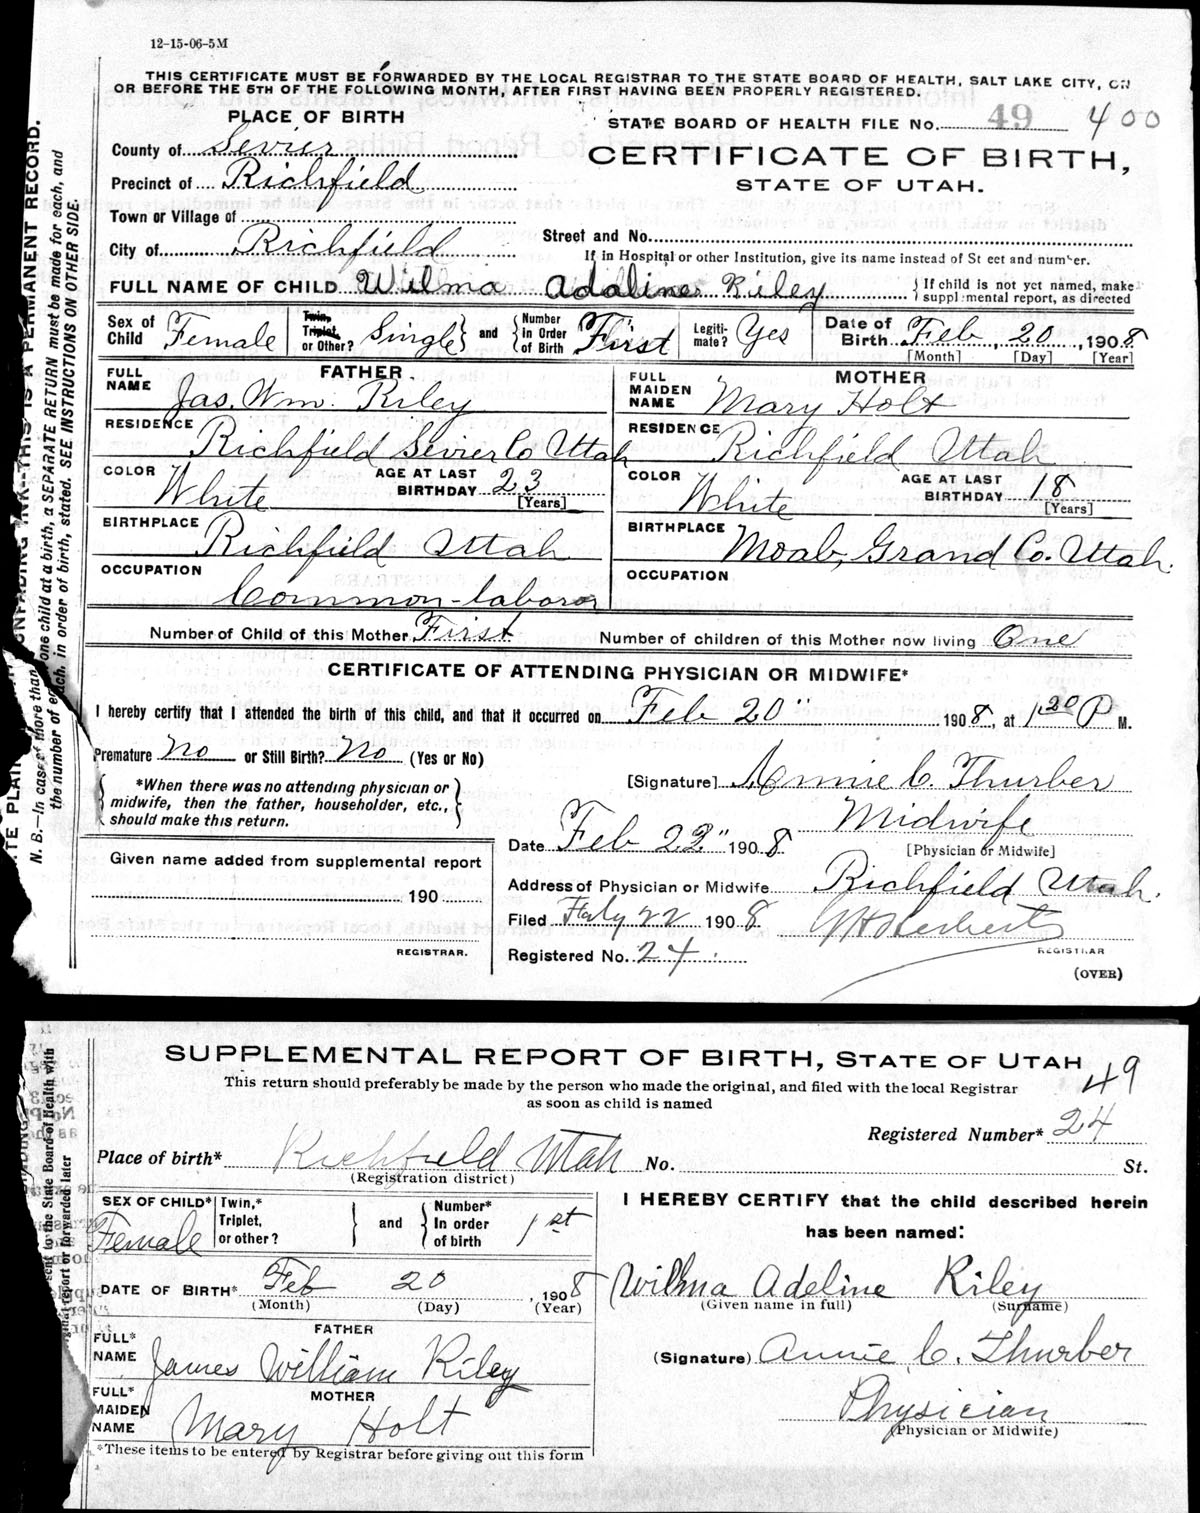 12-15-06-5M
THIS CERTIFICATE MUST BE FORWARDED BY THE LOCAL REGISTRAR TO THE STATE BOARD OF HEALTH, SALT LAKE CITY, ON
OR BEFORE THE 5TH OF THE FOLLOWING MONTH, AFTER FIRST HAVING BEEN PROPERLY REGISTERED.
PLACE OF BIRTH
STATE BOARD OF HEALTH FILE No. 49 400
County of Sevier
CERTIFICATE OF BIRTH,
Precinct of Richfield
STATE OF UTAH.
Town or Village of
City of Richfield
Street and No.
If in Hospital or other Institution, give its name instead of St eet and number.
FULL NAME OF CHILD Wilma Adaline Riley { If child is not yet named, make
supplemental report, as directed
Sex of Child Female Twin, Triplet, or Other? Single and Number in Order of Birth First Legiti-mate? Yes Date of Birth Feb 20, 1908
[Month] [Day] [Year]
FATHER
MOTHER
FULL NAME Jas. Wm. Riley
FULL MAIDEN NAME Mary Holt
RESIDENCE Richfield Sevier Co Utah
RESIDENCE Richfield Utah
COLOR White AGE AT LAST BIRTHDAY 23 [Years]
COLOR White AGE AT LAST BIRTHDAY 18 [Years]
BIRTHPLACE Richfield Utah
BIRTHPLACE Moab, Grand Co. Utah.
OCCUPATION Common-labor
OCCUPATION
Number of Child of this Mother First Number of children of this Mother now living One
CERTIFICATE OF ATTENDING PHYSICIAN OR MIDWIFE*
I hereby certify that I attended the birth of this child, and that it occurred on Feb 20" 1908, at 1 20 P M.
Premature No or Still Birth? No (Yes or No)
*When there was no attending physician or
midwife, then the father, householder, etc.,
should make this return.
[Signature] Annie C. Thurber
Midwife
[Physician or Midwife]
Date Feb 22" 1908
Given name added from supplemental report
190
REGISTRAR.
Address of Physician or Midwife Richfield Utah.
Filed Feby 22 1908 Herbert
REGISTRAR
Registered No. 24
(OVER)
TE PLAIN UNFADING INK--THIS IS A PERMANENT RECORD.
N. B.—In case of more than one child at a birth, a SEPARATE RETURN must be made for each, and
the number of each, in order of birth, stated. SEE INSTRUCTIONS ON OTHER SIDE.
SUPPLEMENTAL REPORT OF BIRTH, STATE OF UTAH
49
This return should preferably be made by the person who made the original, and filed with the local Registrar
as soon as child is named
Registered Number* 24
Place of birth* Richfield Utah No. St.
(Registration district)
SEX OF CHILD* Female Twin,* Triplet, or other? and Number* In order of birth 1st
I HEREBY CERTIFY that the child described herein
has been named:
DATE OF BIRTH* Feb 20, 1908
(Month) (Day) (Year)
Wilma Adeline Riley
(Given name in full) (Surname)
FATHER
FULL* NAME James William Riley
(Signature) Annie C. Thurber
MOTHER
FULL* MAIDEN NAME Mary Holt
Physician
(Physician or Midwife)
*These items to be entered by Registrar before giving out this form
sent to the State Board of Health with
original report or forwarded later